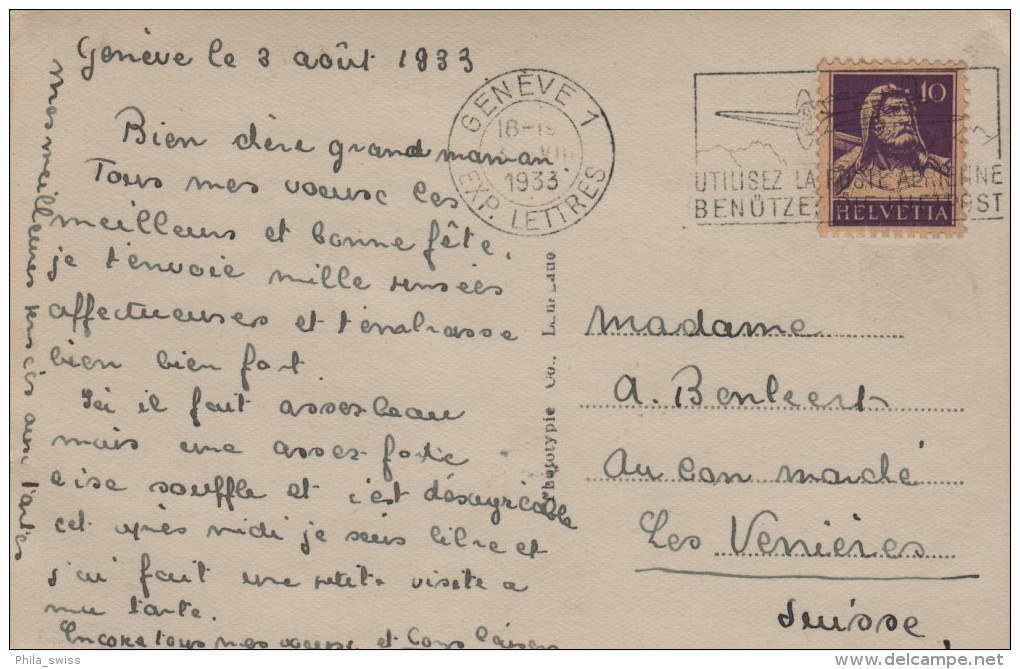 Genève le 3 août 1933.
Bien chère grand maman.
Tous mes voeux les
meilleurs et bonne fête,
je t'envoie mille pensées
affectueuses et t'embrasse
bien bien fort.
Ici il fait assez beau
mais une assez forte
bise souffle et c'est désagréable
cet après midi je suis libre et
j'ai fait une petite visite a
ma tante.
Encore tous mes voeux et bons baisers
mes meilleures pensées aux tantes
GENÈVE 1
18-19
VIII
1933
EXP. LETTRES
UTILISEZ LA POSTE AÉRIENNE
BENÜTZET LUFTPOST
10
HELVETIA
Phototypie Co.,
Madame
A.
Au bon marché
Les Verrières
Suisse,
Phila_swiss